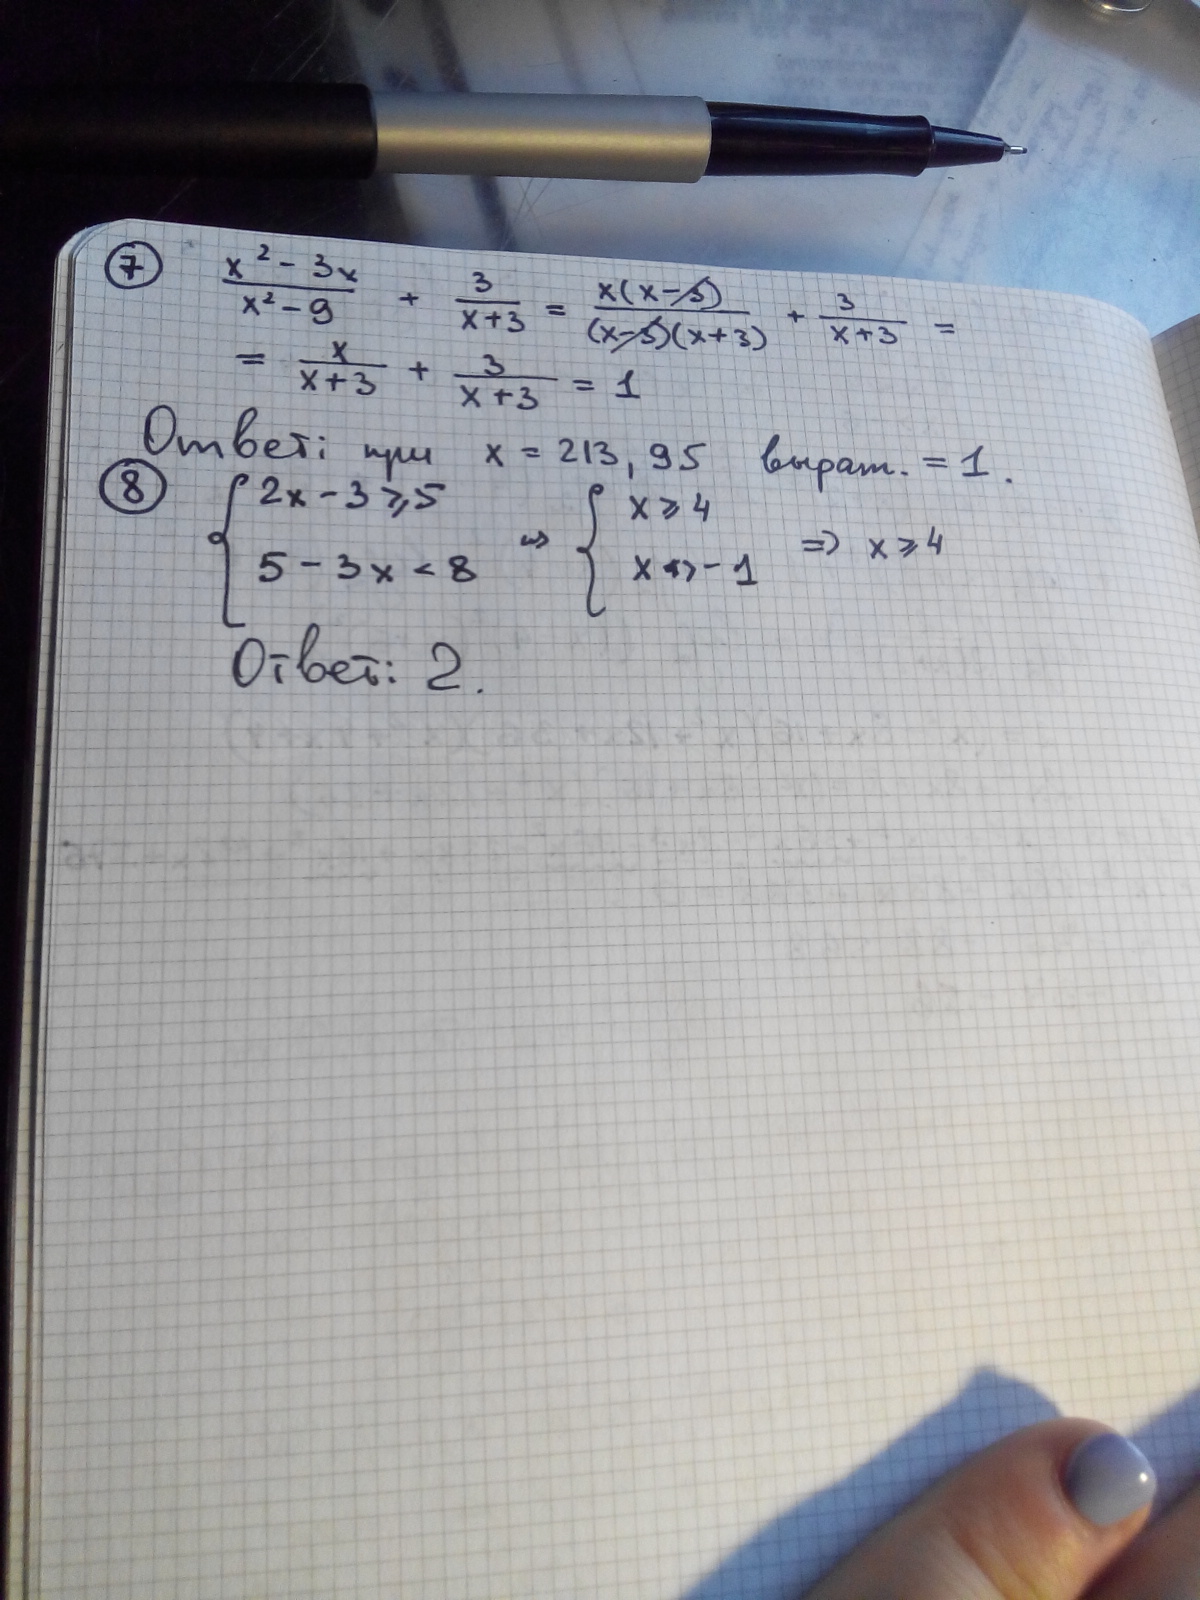 7 x² - 3x / x² - 9 + 3 / x+3 = x(x-3) / (x-3)(x+3) + 3 / x+3 =
= x / x+3 + 3 / x+3 = 1
Ответ: при x = 213,95 выраж. = 1.
8 { 2x - 3 ⩾ 5 ⇒ { x ⩾ 4 ⇒ x ⩾ 4
5 - 3x < 8 x > -1
Ответ: 2.